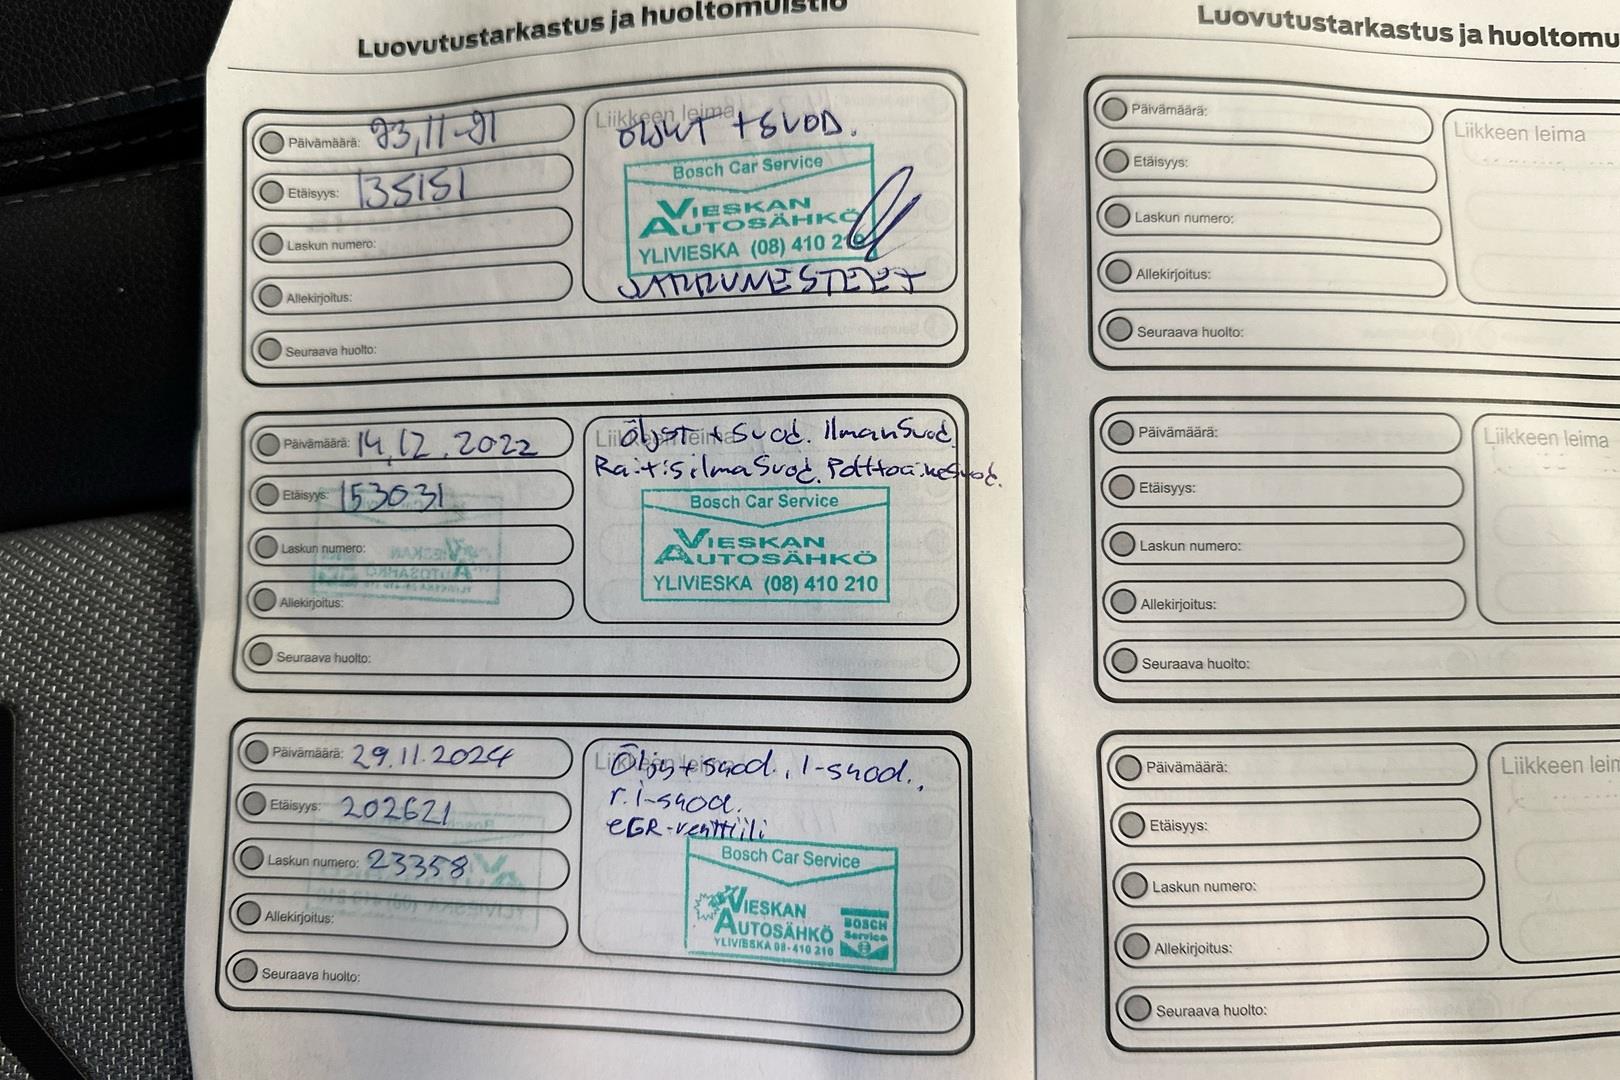 Luovutustarkastus ja huoltomuistio
Päivämäärä: 23,11-21
Etäisyys: 135151
Laskun numero:
Allekirjoitus:
Seuraava huolto:
Liikkeen leima
ÖLJYT + SUOD.
Bosch Car Service
VIESKAN
AUTOSÄHKÖ
YLIVIESKA (08) 410 210
JARRUNESTEET
Päivämäärä: 14.12.2022
Etäisyys: 153031
Laskun numero:
Allekirjoitus:
Seuraava huolto:
Liikkeen leima
Öljyt + Suod. IlmanSuod.
RaitisilmaSuod. PolttoaineSuod.
Bosch Car Service
VIESKAN
AUTOSÄHKÖ
YLIVIESKA (08) 410 210
Päivämäärä: 29.11.2024
Etäisyys: 202621
Laskun numero: 23358
Allekirjoitus:
Seuraava huolto:
Liikkeen leima
Öljy+suod., I-suod.,
r.i-suod.
EGR-venttiili
Bosch Car Service
VIESKAN
AUTOSÄHKÖ
YLIVIESKA 08-410 210
BOSCH
Service
Luovutustarkastus ja huoltomu
Päivämäärä:
Etäisyys:
Laskun numero:
Allekirjoitus:
Seuraava huolto:
Liikkeen leima
Päivämäärä:
Etäisyys:
Laskun numero:
Allekirjoitus:
Seuraava huolto:
Liikkeen leima
Päivämäärä:
Etäisyys:
Laskun numero:
Allekirjoitus:
Seuraava huolto:
Liikkeen leim